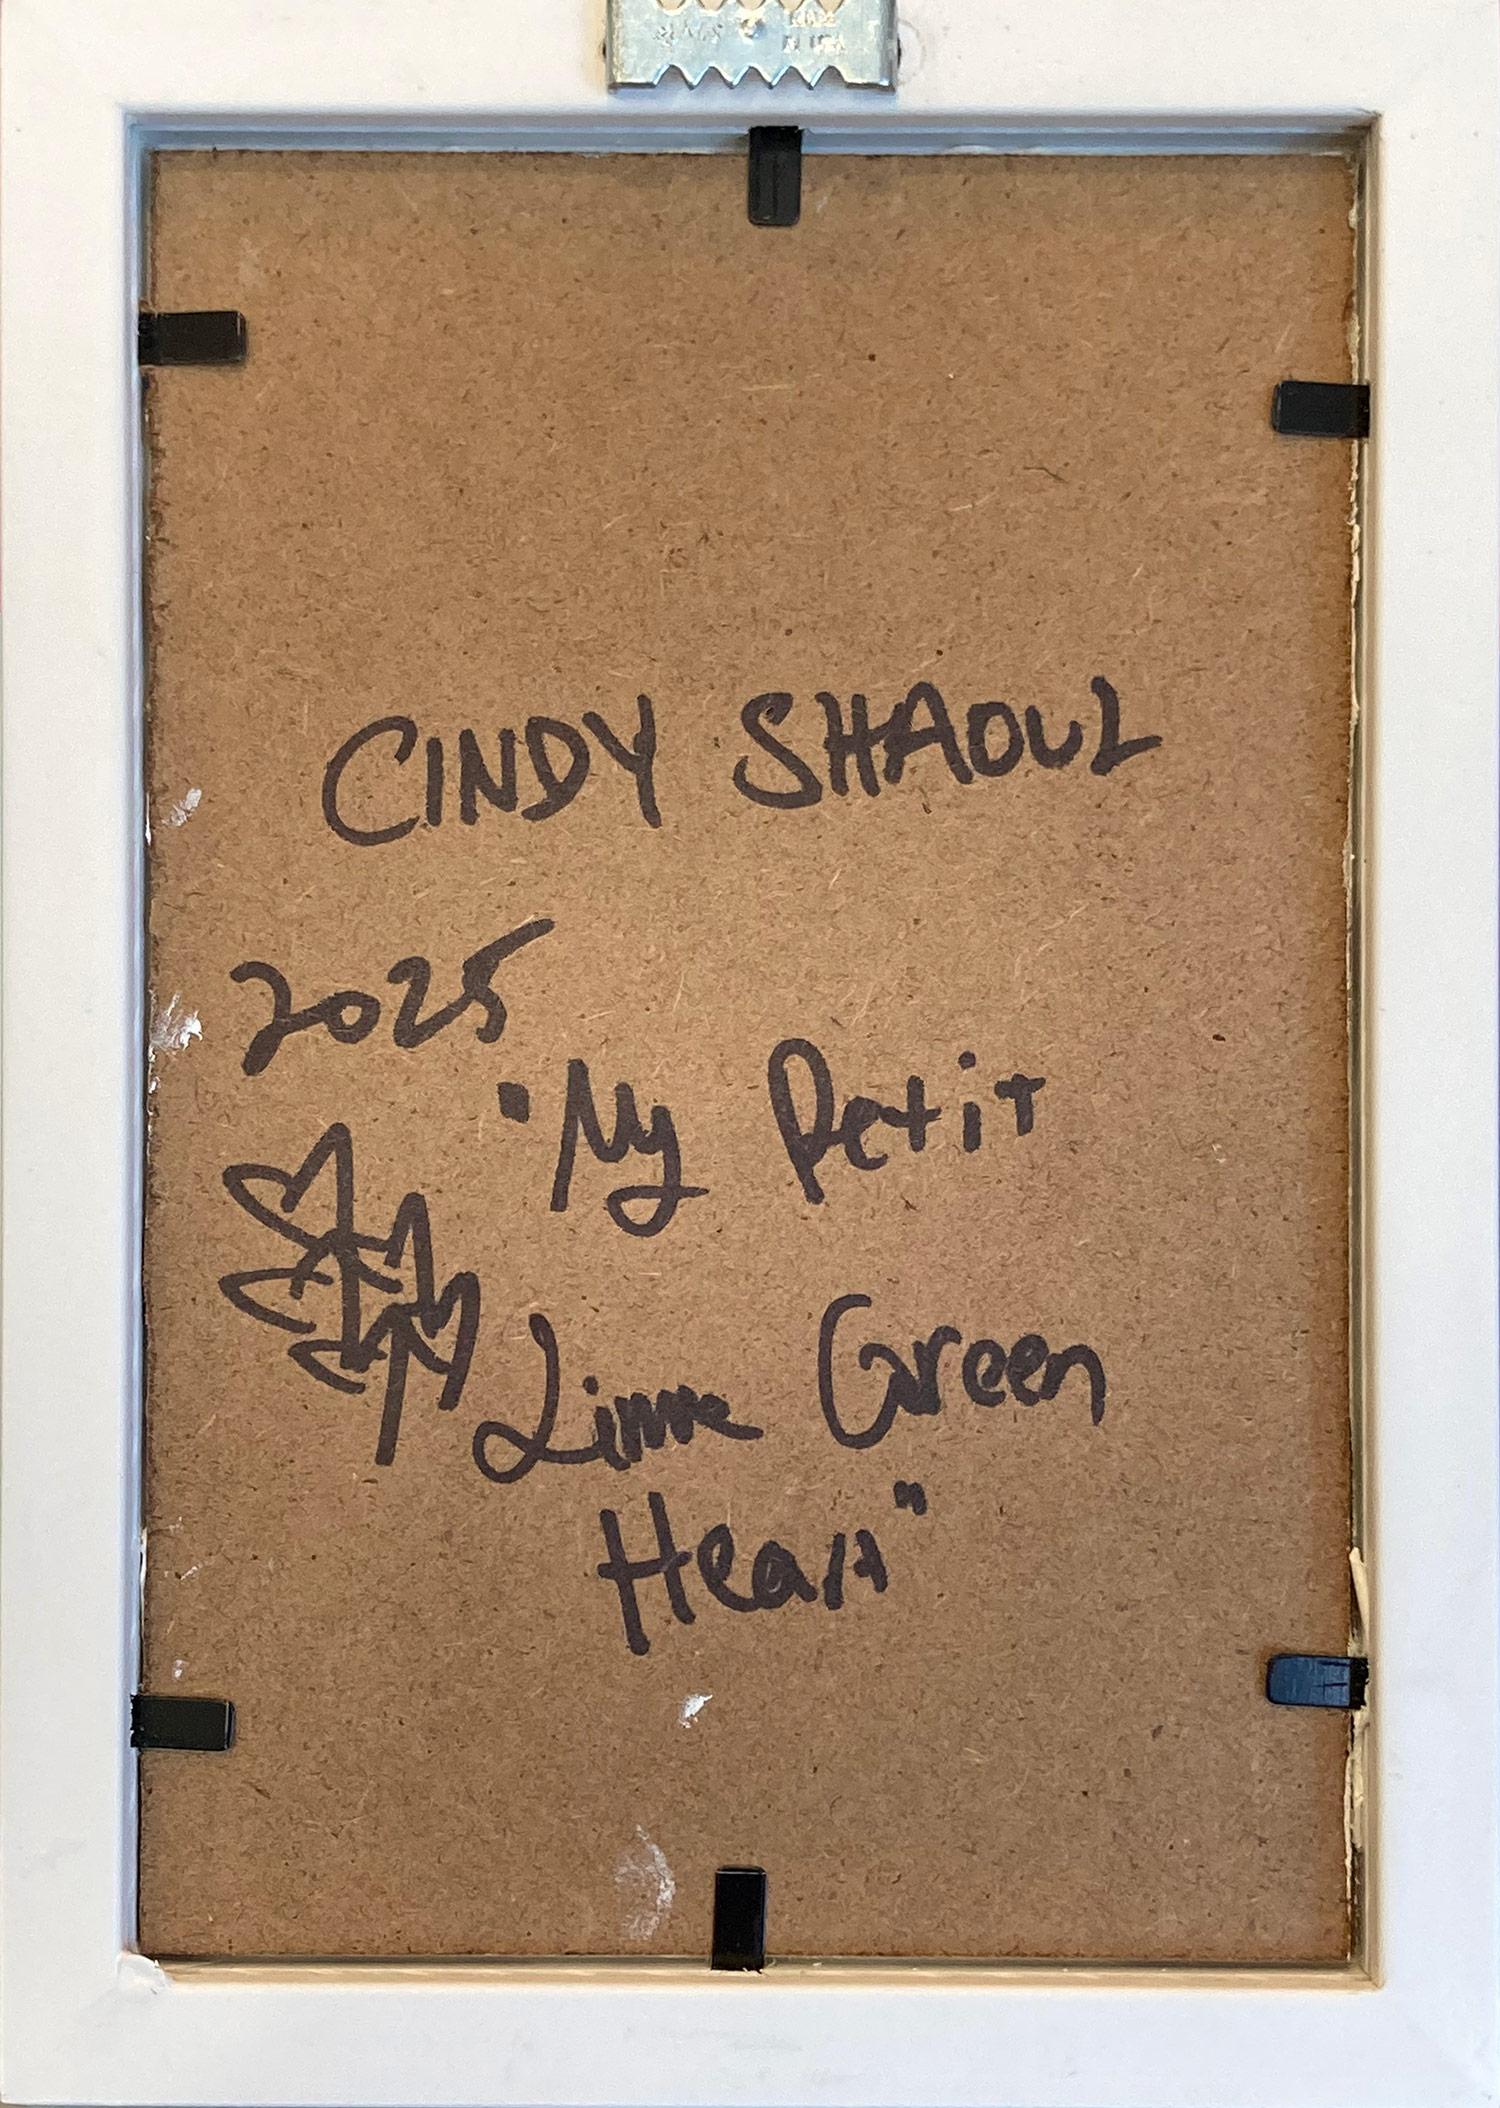 MADE
IN USA
CINDY SHAOUL
2025
"My Petit
Lime Green
Heart"